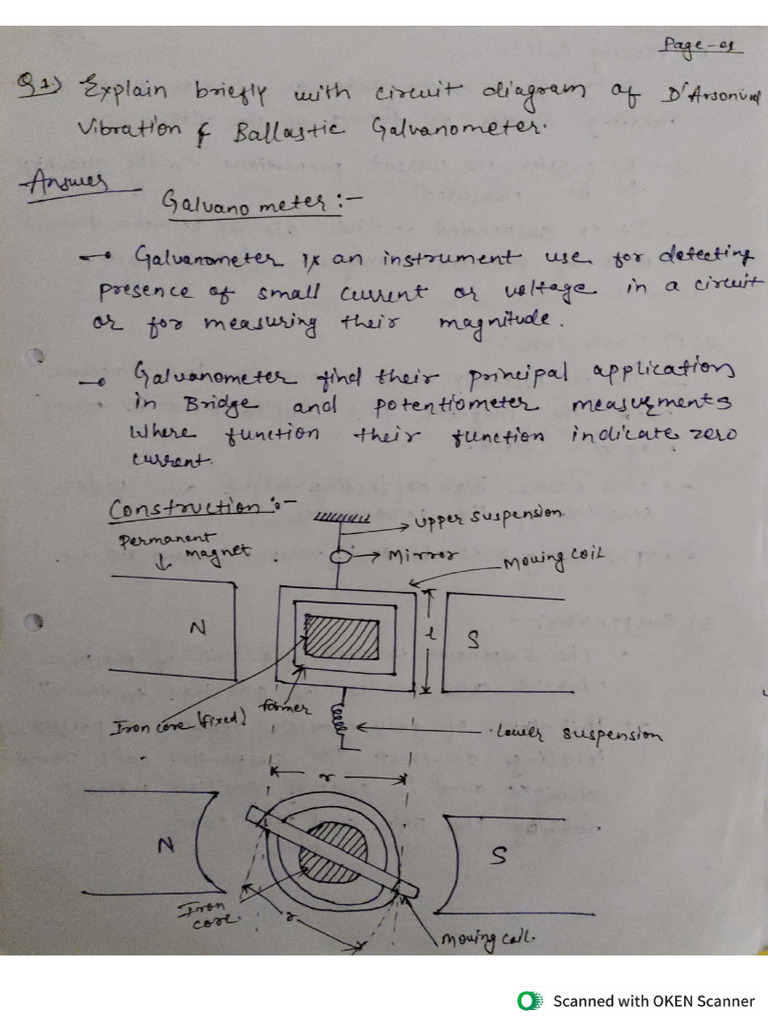 Page-01
Q1) Explain briefly with circuit diagram of D'Arsonval
Vibration & Ballastic Galvanometer.
Answer
Galvanometer :-
Galvanometer is an instrument use for detecting
presence of small current or voltage in a circuit
or for measuring their magnitude.
Galvanometer find their principal applications
in Bridge and potentiometer measurments
Where function their function indicate zero
current.
Construction :-
upper suspension.
Permanent
magnet
Mirror
Moving coil
N
l
S
Iron core (fixed)
former
Lower suspension
r
N
S
Iron
core.
r
Moving coil.
Scanned with OKEN Scanner